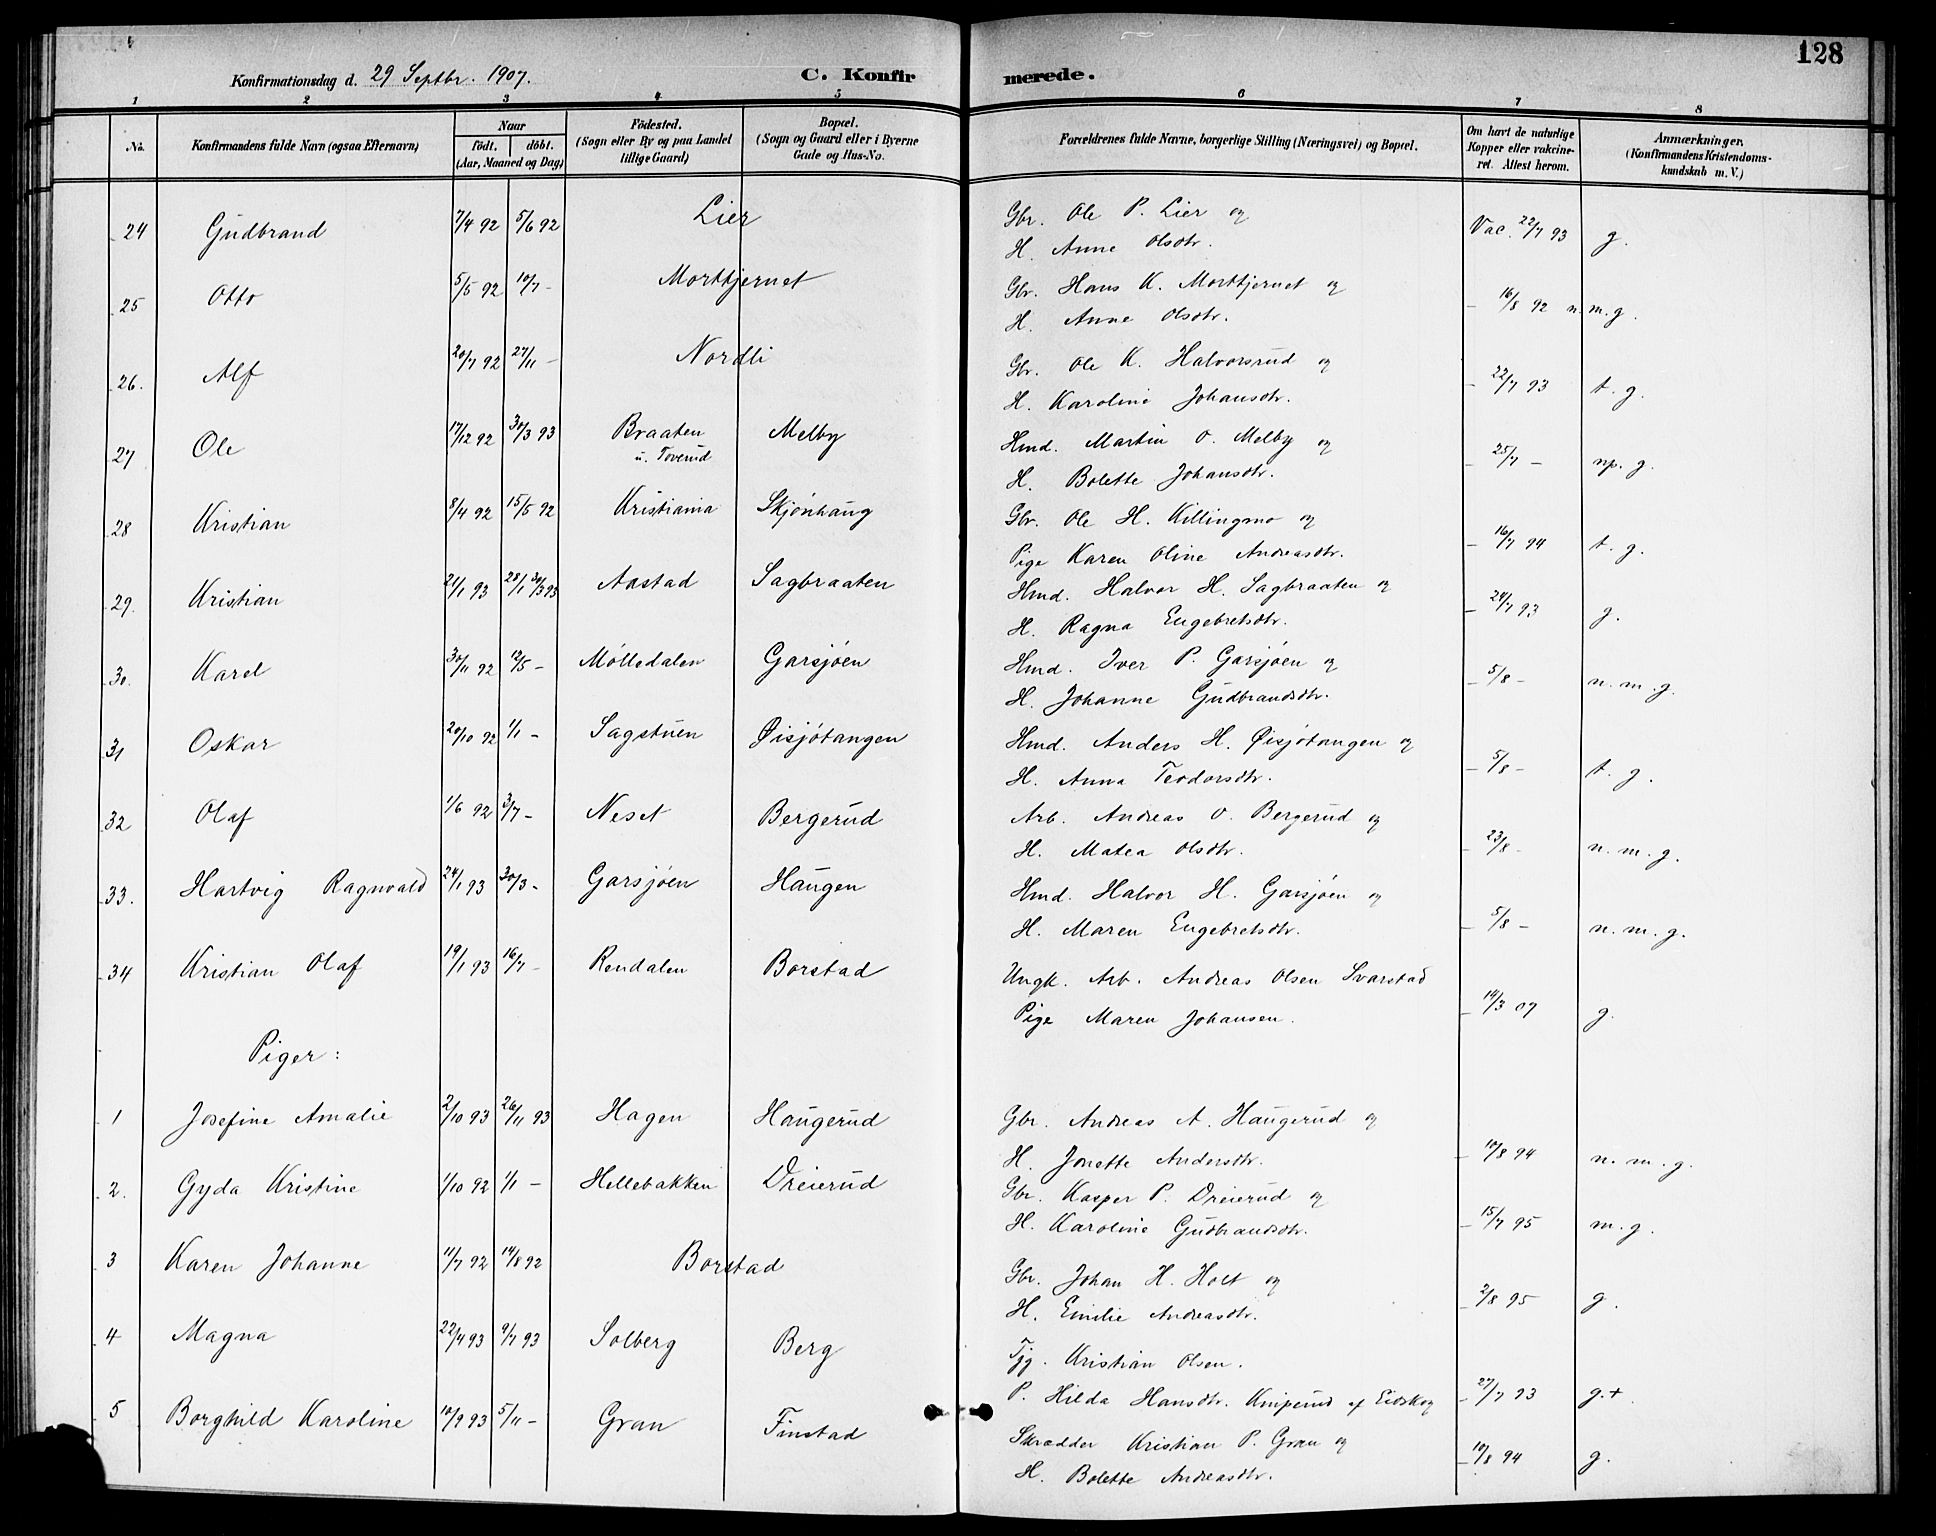 128
Konfirmationsdag d. 29 Septbr. 1907. C. Konfir merede.
1 2 3 4 5 6 7 8
No. Konfirmandens fulde Navn (ogsaa Efternavn) Naar födt. döbt. (Aar, Maaned og Dag) Födested. (Sogn eller By og paa Landet tillige Gaard) Bopæl. (Sogn og Gaard eller i Byerne Gade og Hus-No. Forældrenes fulde Navne, borgerlige Stilling (Næringsvei) og Bopæl. Om havt de naturlige Kopper eller vakcineret. Attest herom. Anmærkninger. (Konfirmandens Kristendomskundskab m. V.)
24 Gudbrand 7/4 92 5/6 92 Lier Gbr. Ole P. Lier og Vac. 22/7 93 g.
H. Anne Olsdtr.
25 Otto 5/5 92 10/7 - Morttjernet Gbr. Hans K. Morttjernet og - 16/8 92 n. m. g.
H. Anne Olsdtr.
26. Alf 20/7 92 27/11 - Nordli Gbr. Ole K. Halvorsrud og - 22/7 93 t. g.
H. Karoline Johansdtr.
27 Ole 17/12 92 30/3 93 Braaten u. Toverud Melby Hmd. Martin O. Melby og - 25/7 - np. g.
H. Bolette Johansdtr.
28 Kristian 8/4 92 15/5 92 Kristiania Skjönhaug Gbr. Ole H. Killingmo og - 16/7 94 t. g.
Pige Karen Oline Andreasdtr.
29. Kristian 21/1 93 28/1 30/3 93 Aastad Sagbraaten Hmd. Halvor H. Sagbraaten og - 24/7 93 g.
H. Ragna Engebretsdtr.
30. Karel 30/11 92 12/5 - Mölledalen Garsjöen Hmd. Iver P. Garsjöen og - 5/8 - n. m. g.
H. Johanne Gudbrandsdtr.
31 Oskar 20/10 92 1/1 - Sagstuen Øisjötangen Hmd. Anders H. Øisjötangen og - 5/8 - t. g.
H. Anna Teodorsdtr.
32 Olaf 1/6 92 3/7 - Neset Bergerud Arb. Andreas O. Bergerud og - 23/8 - n. m. g.
H. Matea Olsdtr.
33. Hartvig Ragnvald 24/1 93 30/3 - Garsjöen Haugen Hmd. Halvor H. Garsjöen og - 5/8 - n. m. g.
H. Maren Engebretsdtr.
34 Kristian Olaf 19/1 93 16/7 - Rendalen Borstad Ungk. Arb. Andreas Olsen Svarstad - 14/3 07 g.
Pige Maren Johansen.
Piger:
1 Josefine Amalie 2/10 93 26/11 93 Hagen Haugerud Gbr. Andreas A. Haugerud og - 10/8 94 n. m. g.
H. Jonette Andersdtr.
2. Gyda Kristine 1/10 92 1/1 - Hellebakken Dreierud Gbr. Kasper P. Dreierud og - 15/7 95 m. g.
H. Karoline Gudbrandsdtr.
3 Karen Johanne 11/7 92 14/8 92 Borstad Gbr. Johan H. Holt og - 2/8 95 g.
H. Emilie Andreasdtr.
4 Magna 22/4 93 9/7 93 Solberg Berg Tjg. Kristian Olsen.
P. Hilda Hansdtr. Kniperud af Eidskog - 27/7 93 g. +
5 Borghild Karoline 10/9 93 5/11 - Gran Finstad Skrædder Kristian P. Gran og - 10/8 94 g.
H. Bolette Andreasdtr.